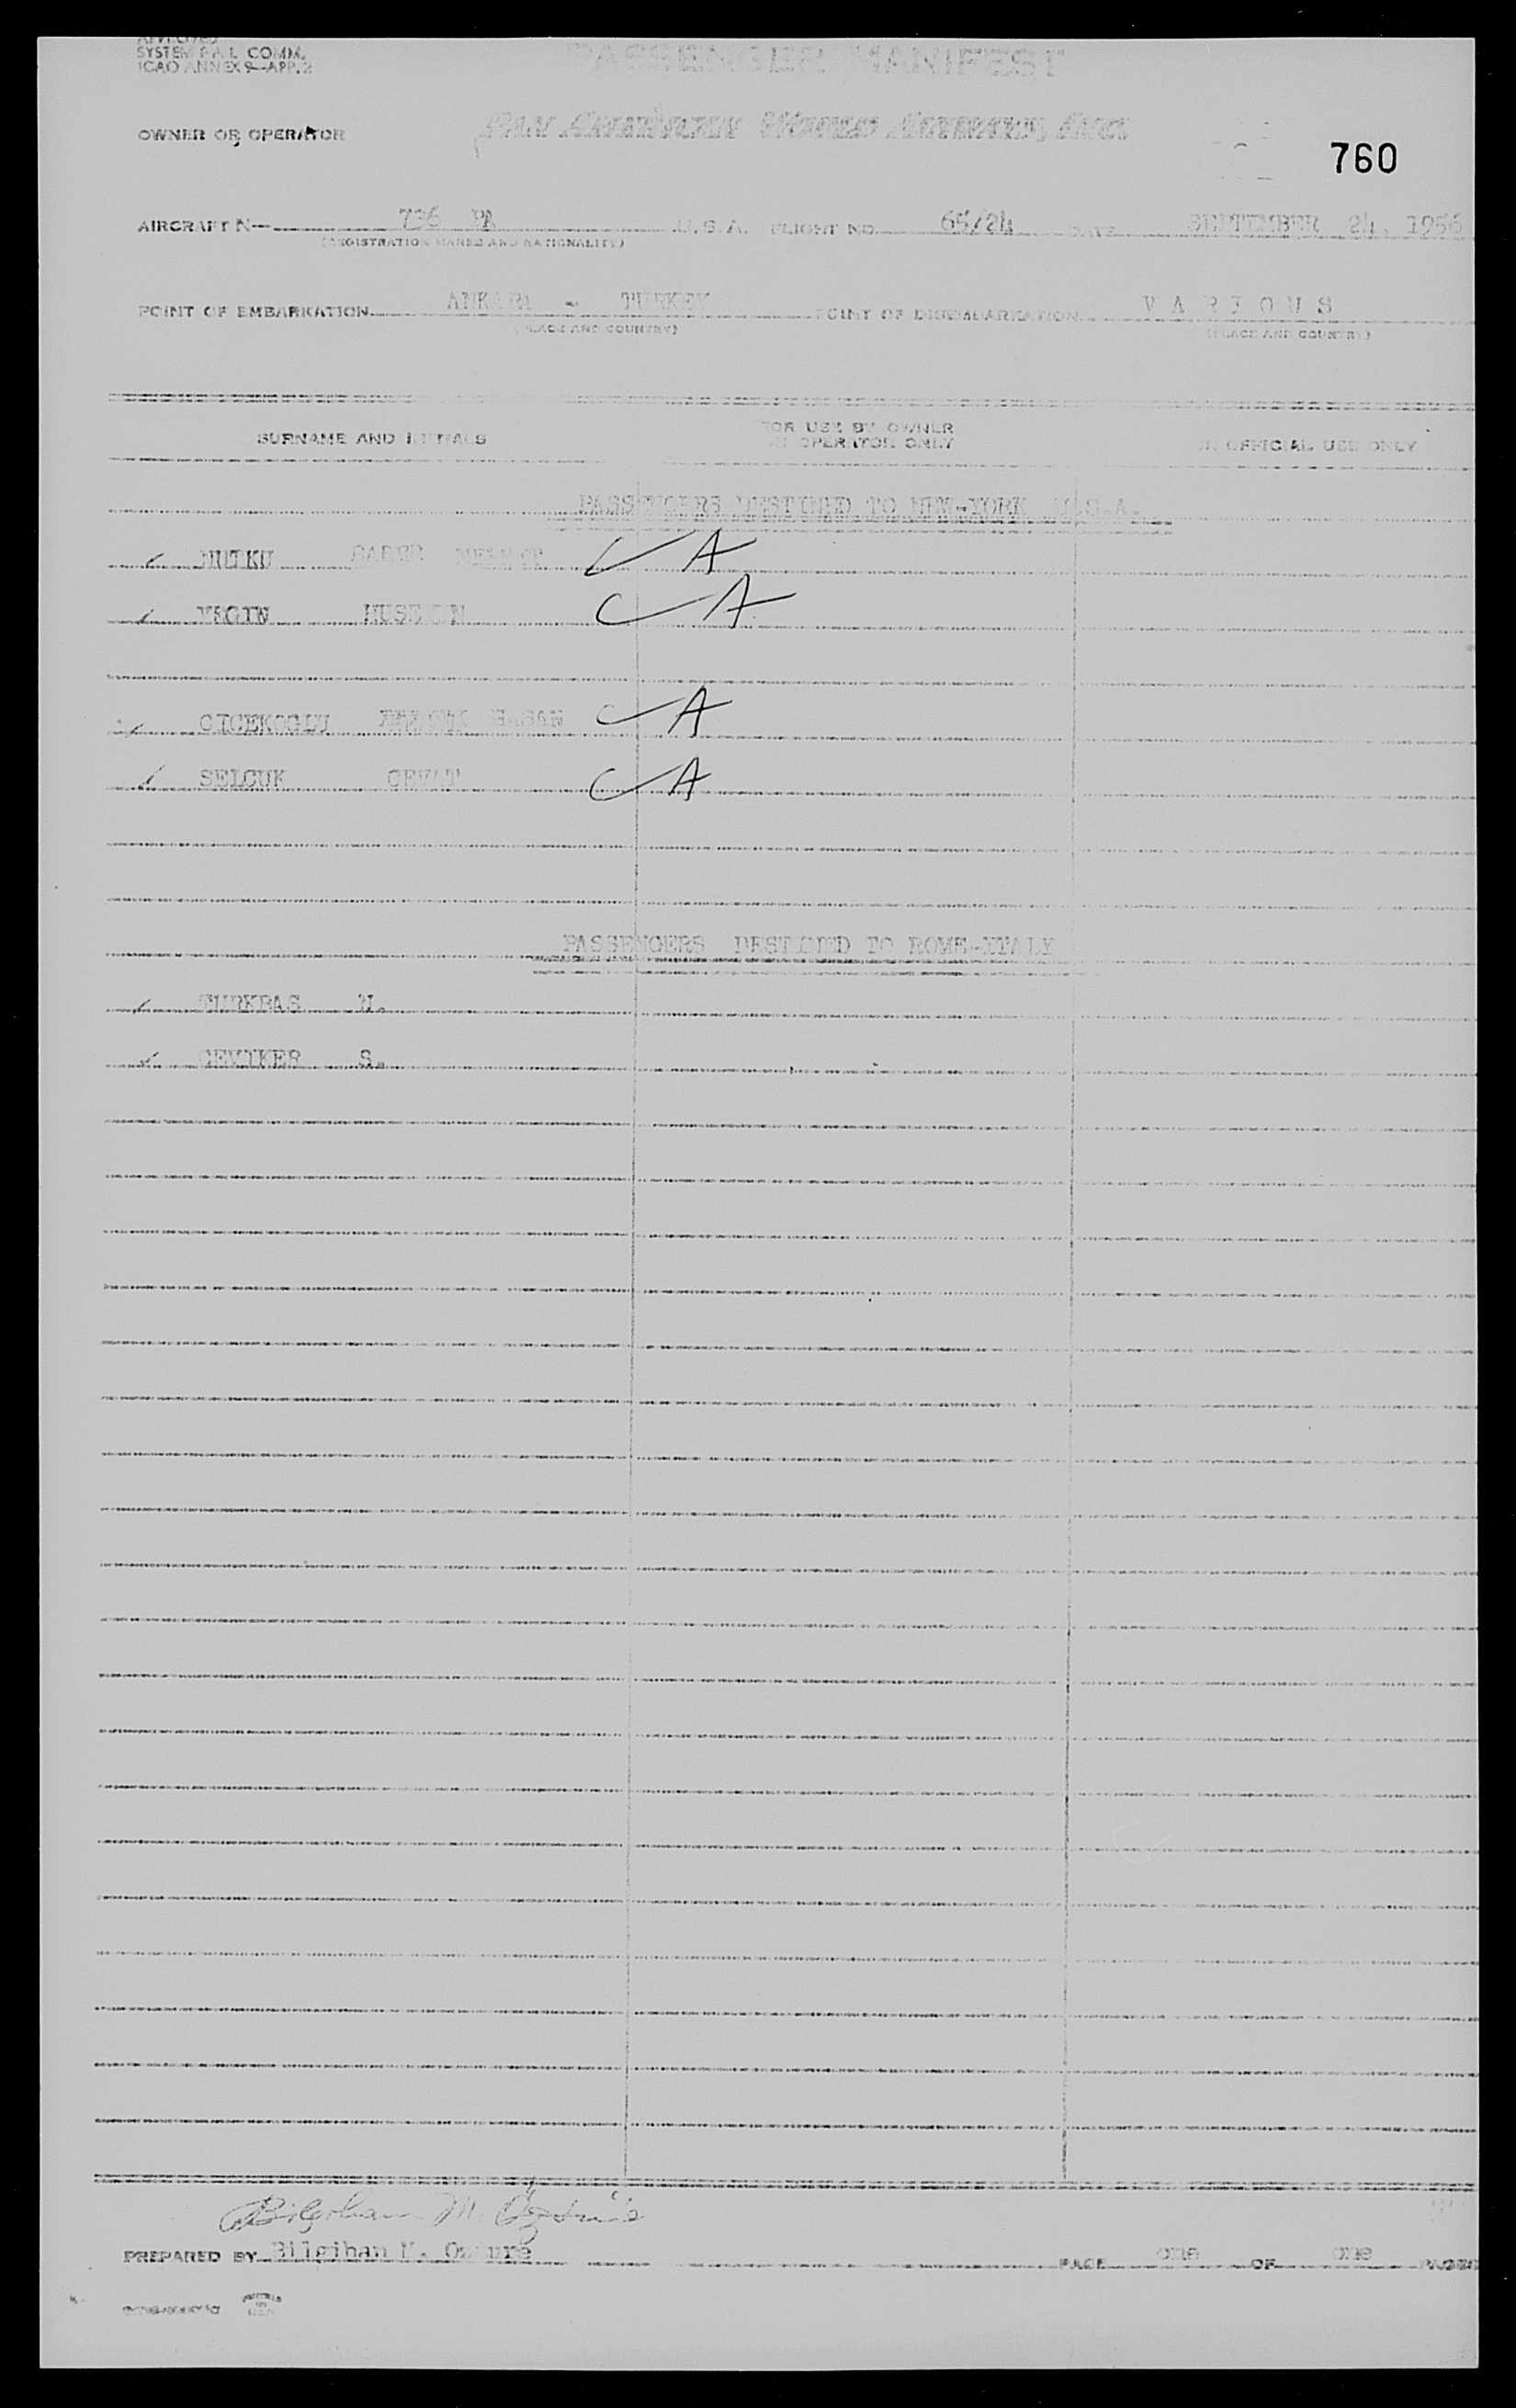 SYSTEM F.A.L. COMM.
ICAO ANNEX 9-APP.2
PASSENGER MANIFEST
OWNER OR OPERATOR PAN AMERICAN WORLD AIRWAYS, INC.
760
AIRCRAFT N— 736 PA U.S.A. FLIGHT NO. 65/24 DATE SEPTEMBER 24, 1956
(REGISTRATION MARKS AND NATIONALITY)
POINT OF EMBARKATION ANKARA - TURKEY POINT OF DISEMBARKATION VARIOUS
(PLACE AND COUNTRY) (PLACE AND COUNTRY)
SURNAME AND INITIALS
FOR USE BY OWNER
OR OPERATOR ONLY
OFFICIAL USE ONLY
PASSENGERS DESTINED TO NEW-YORK U.S.A.
✓ MUTKU ✓ A
✓ HUSEYIN ✓ A
✓ CICEKOGLU HASAN ✓ A
✓ SELCUK CEVAT ✓ A
PASSENGERS DESTINED TO ROME-ITALY
✓ TURKBAS N.
✓ S.
PREPARED BY Bilgihan M.
PAGE one OF one PAGES